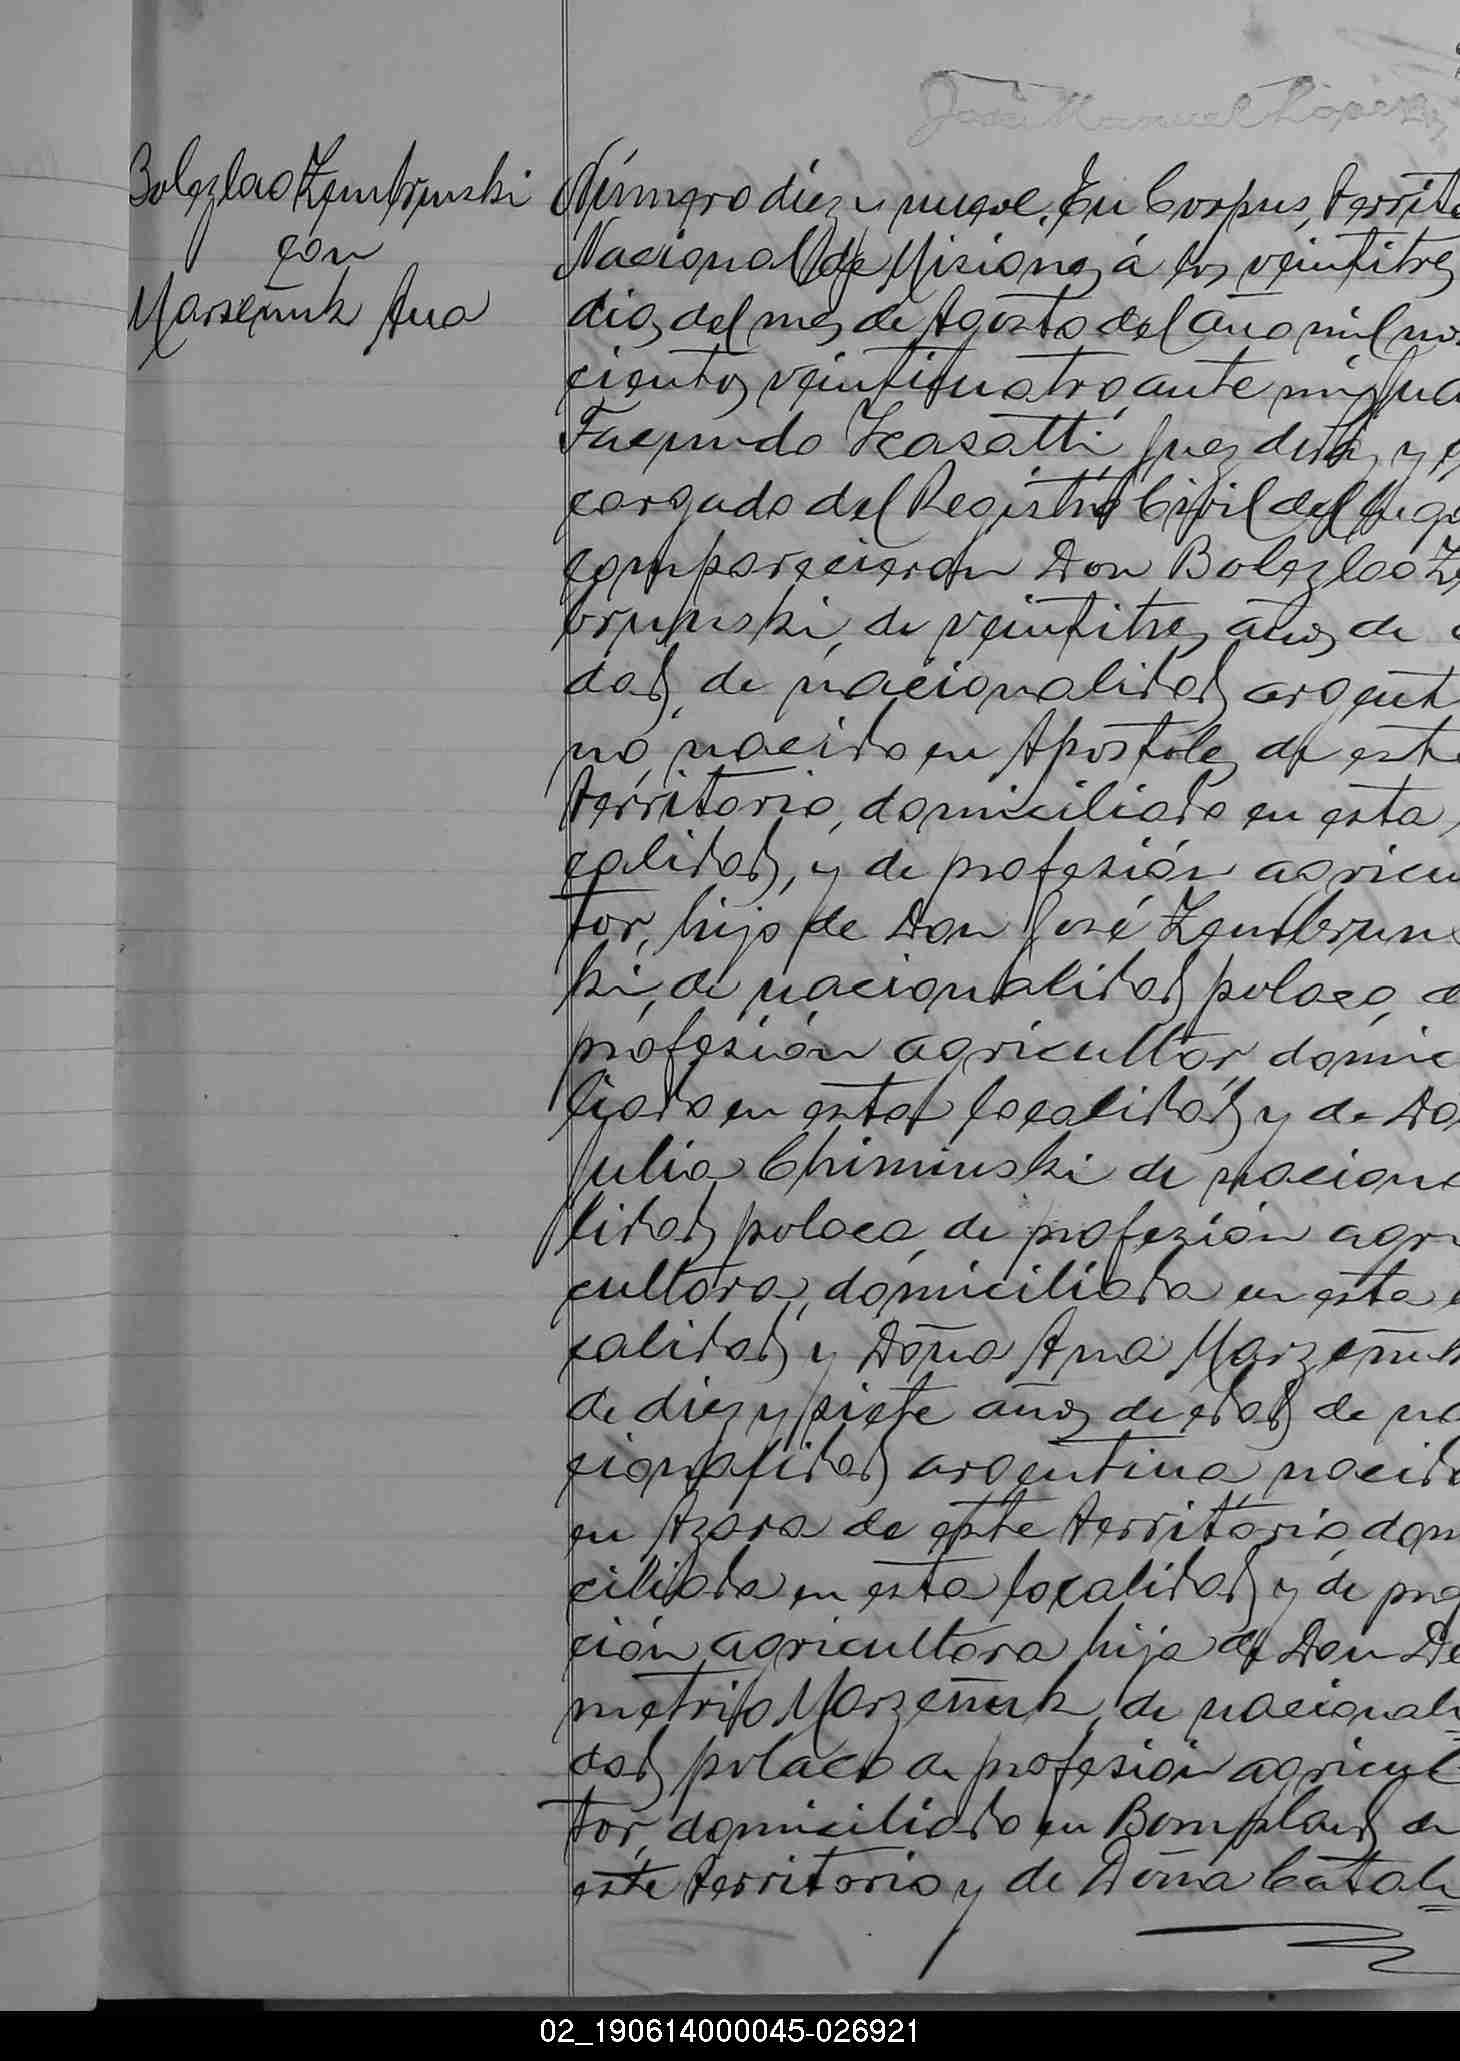 José Manuel López
Bolezlao Zembrinski
con
Marseñuk Ana
Número diez y nueve. En Corpus, Territo
Nacional de Misiones, á los veintitres
dias del mes de Agosto del año mil no
cientos veinticuatro, ante mi, Jua
Facundo Zcasatti, Juez de Paz y e
cargado del Registro Civil del lugar
comparecieron Don Bolezlao Ze
brunski, de veintitres años de e
dad, de nacionalidad argenti
no, nacido en Apostoles de este
territorio, domiciliado en esta
calidad, y de profesión agricul
tor, hijo de Don José Zembruns
ki, de nacionalidad polaco, d
profesión agricultor, domic
liado en esta localidad y de Do
Julia Chiminski de naciona
lidad polaca, de profesión agri
cultora, domiciliada en esta
calidad y Doña Ana Marzeñuk
de diez y siete años de edad de na
cionalidad argentina, nacida
en Azara de este territorio, domi
ciliada en esta localidad y de prof
ción agricultora hija de Don De
metrio Marzeñuk, de nacionali
dad polaco de profesión agricul
tor, domiciliado en Bompland de
este territorio y de Doña Catali
02_190614000045-026921